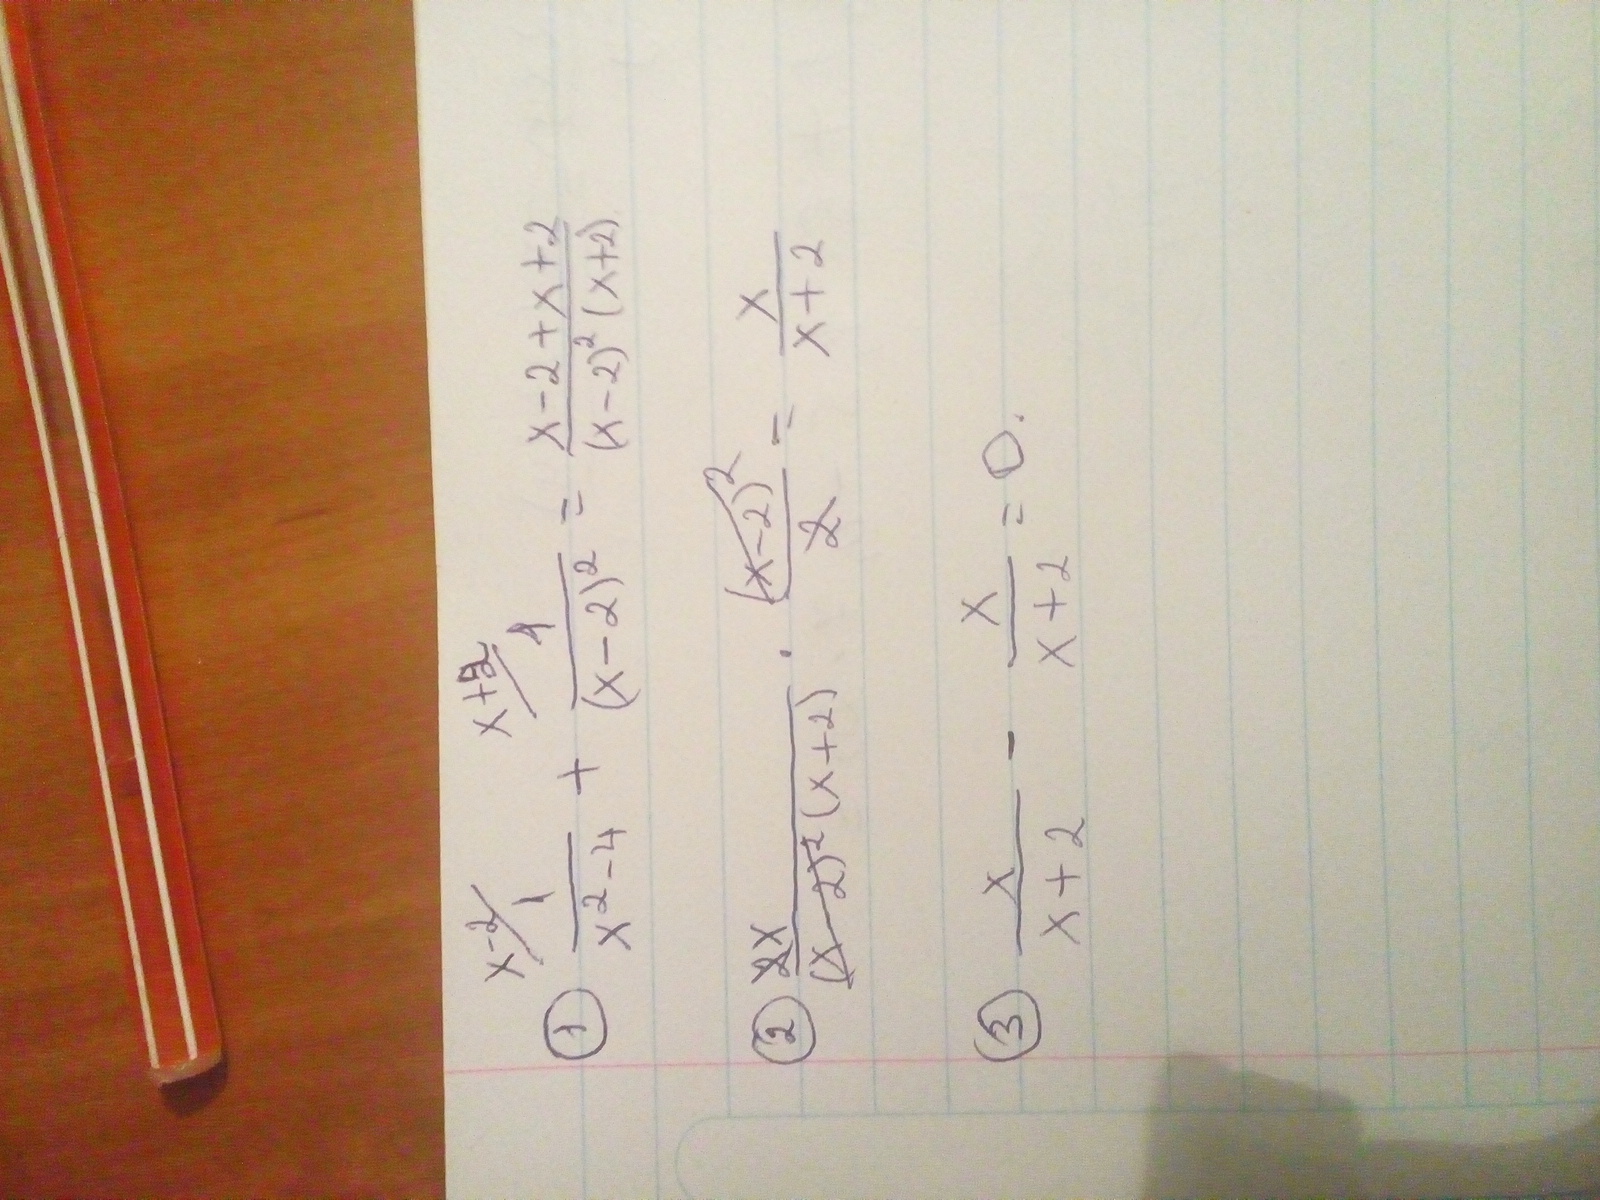 x-2/ x+2/
① 1/(x²-4) + 1/(x-2)² = (x-2+x+2)/((x-2)²(x+2))
② 2x/((x-2)²(x+2)) · (x-2)²/2 = x/(x+2)
③ x/(x+2) - x/(x+2) = 0.